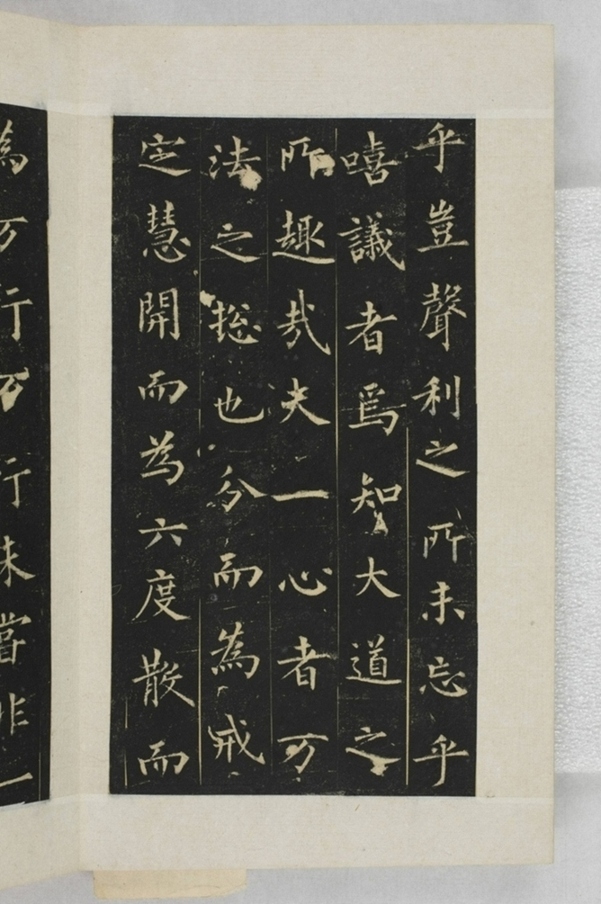 乎豈聲利之所未忘乎
嘻議者焉知大道之
所趣哉夫一心者万
法之揔也分而為戒
定慧開而為六度散而
為万行万行未嘗非一